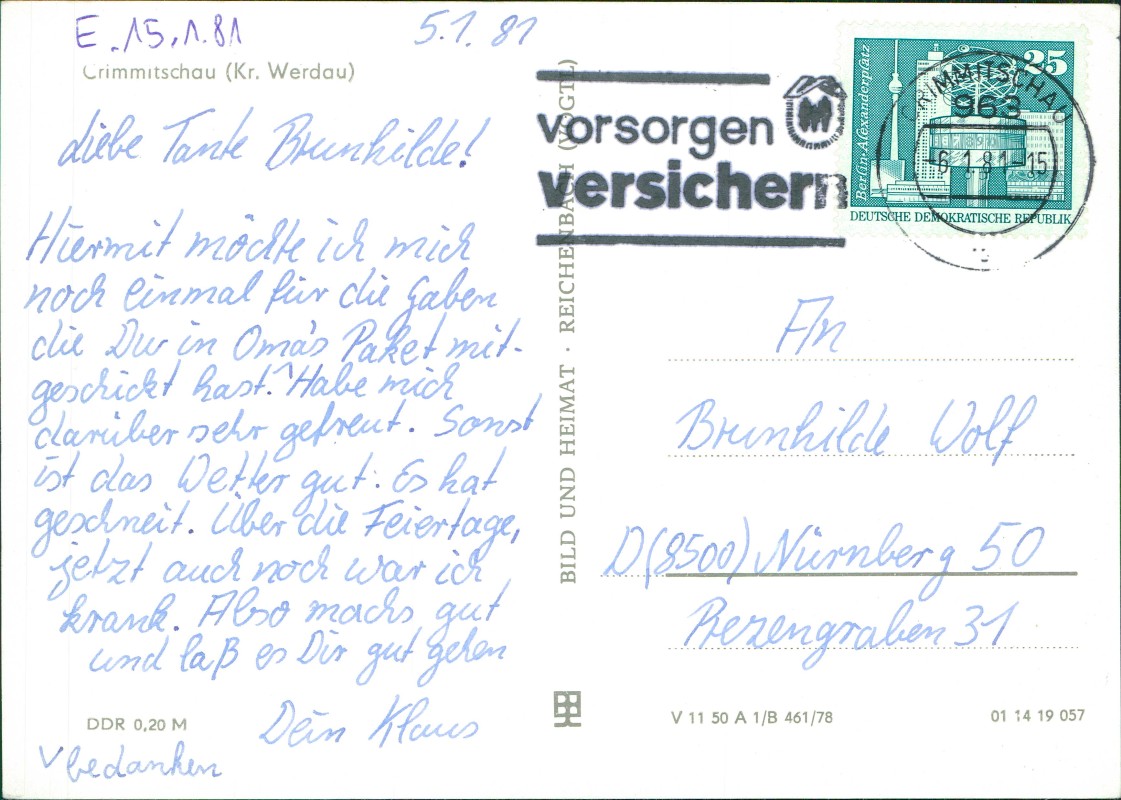 E. 15.1.81
5.1.81
Crimmitschau (Kr. Werdau)
Liebe Tante Brunhilde!
Hiermit möchte ich mich
noch einmal für die Gaben
die Du in Oma's Paket mit-
geschickt hast. ^ Habe mich
darüber sehr gefreut. Sonst
ist das Wetter gut: Es hat
geschneit. Über die Feiertage,
jetzt auch noch war ich
krank. Also machs gut
und laß es Dir gut gehen
Dein Klaus
DDR 0,20 M
V bedanken
BILD UND HEIMAT · REICHENBACH (VOGTL)
vorsorgen
versichern
Berlin-Alexanderplatz
25
DEUTSCHE DEMOKRATISCHE REPUBLIK
CRIMMITSCHAU
963
-6.1.81-15
An
Brunhilde Wolf
D(8500) Nürnberg 50
Prezengraben 31
V 11 50 A 1/B 461/78
01 14 19 057